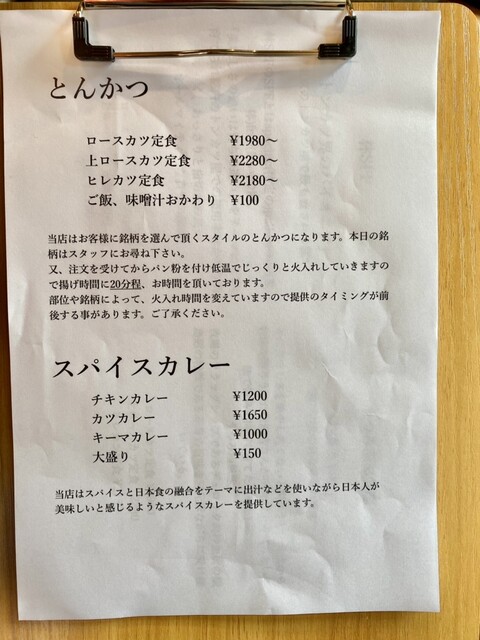 とんかつ
ロースカツ定食 ¥1980～
上ロースカツ定食 ¥2280～
ヒレカツ定食 ¥2180～
ご飯、味噌汁おかわり ¥100
当店はお客様に銘柄を選んで頂くスタイルのとんかつになります。本日の銘
柄はスタッフにお尋ね下さい。
又、注文を受けてからパン粉を付け低温でじっくりと火入れしていきますの
で揚げ時間に20分程、お時間を頂いております。
部位や銘柄によって、火入れ時間を変えていますので提供のタイミングが前
後する事があります。ご了承ください。
スパイスカレー
チキンカレー ¥1200
カツカレー ¥1650
キーマカレー ¥1000
大盛り ¥150
当店はスパイスと日本食の融合をテーマに出汁などを使いながら日本人が
美味しいと感じるようなスパイスカレーを提供しています。